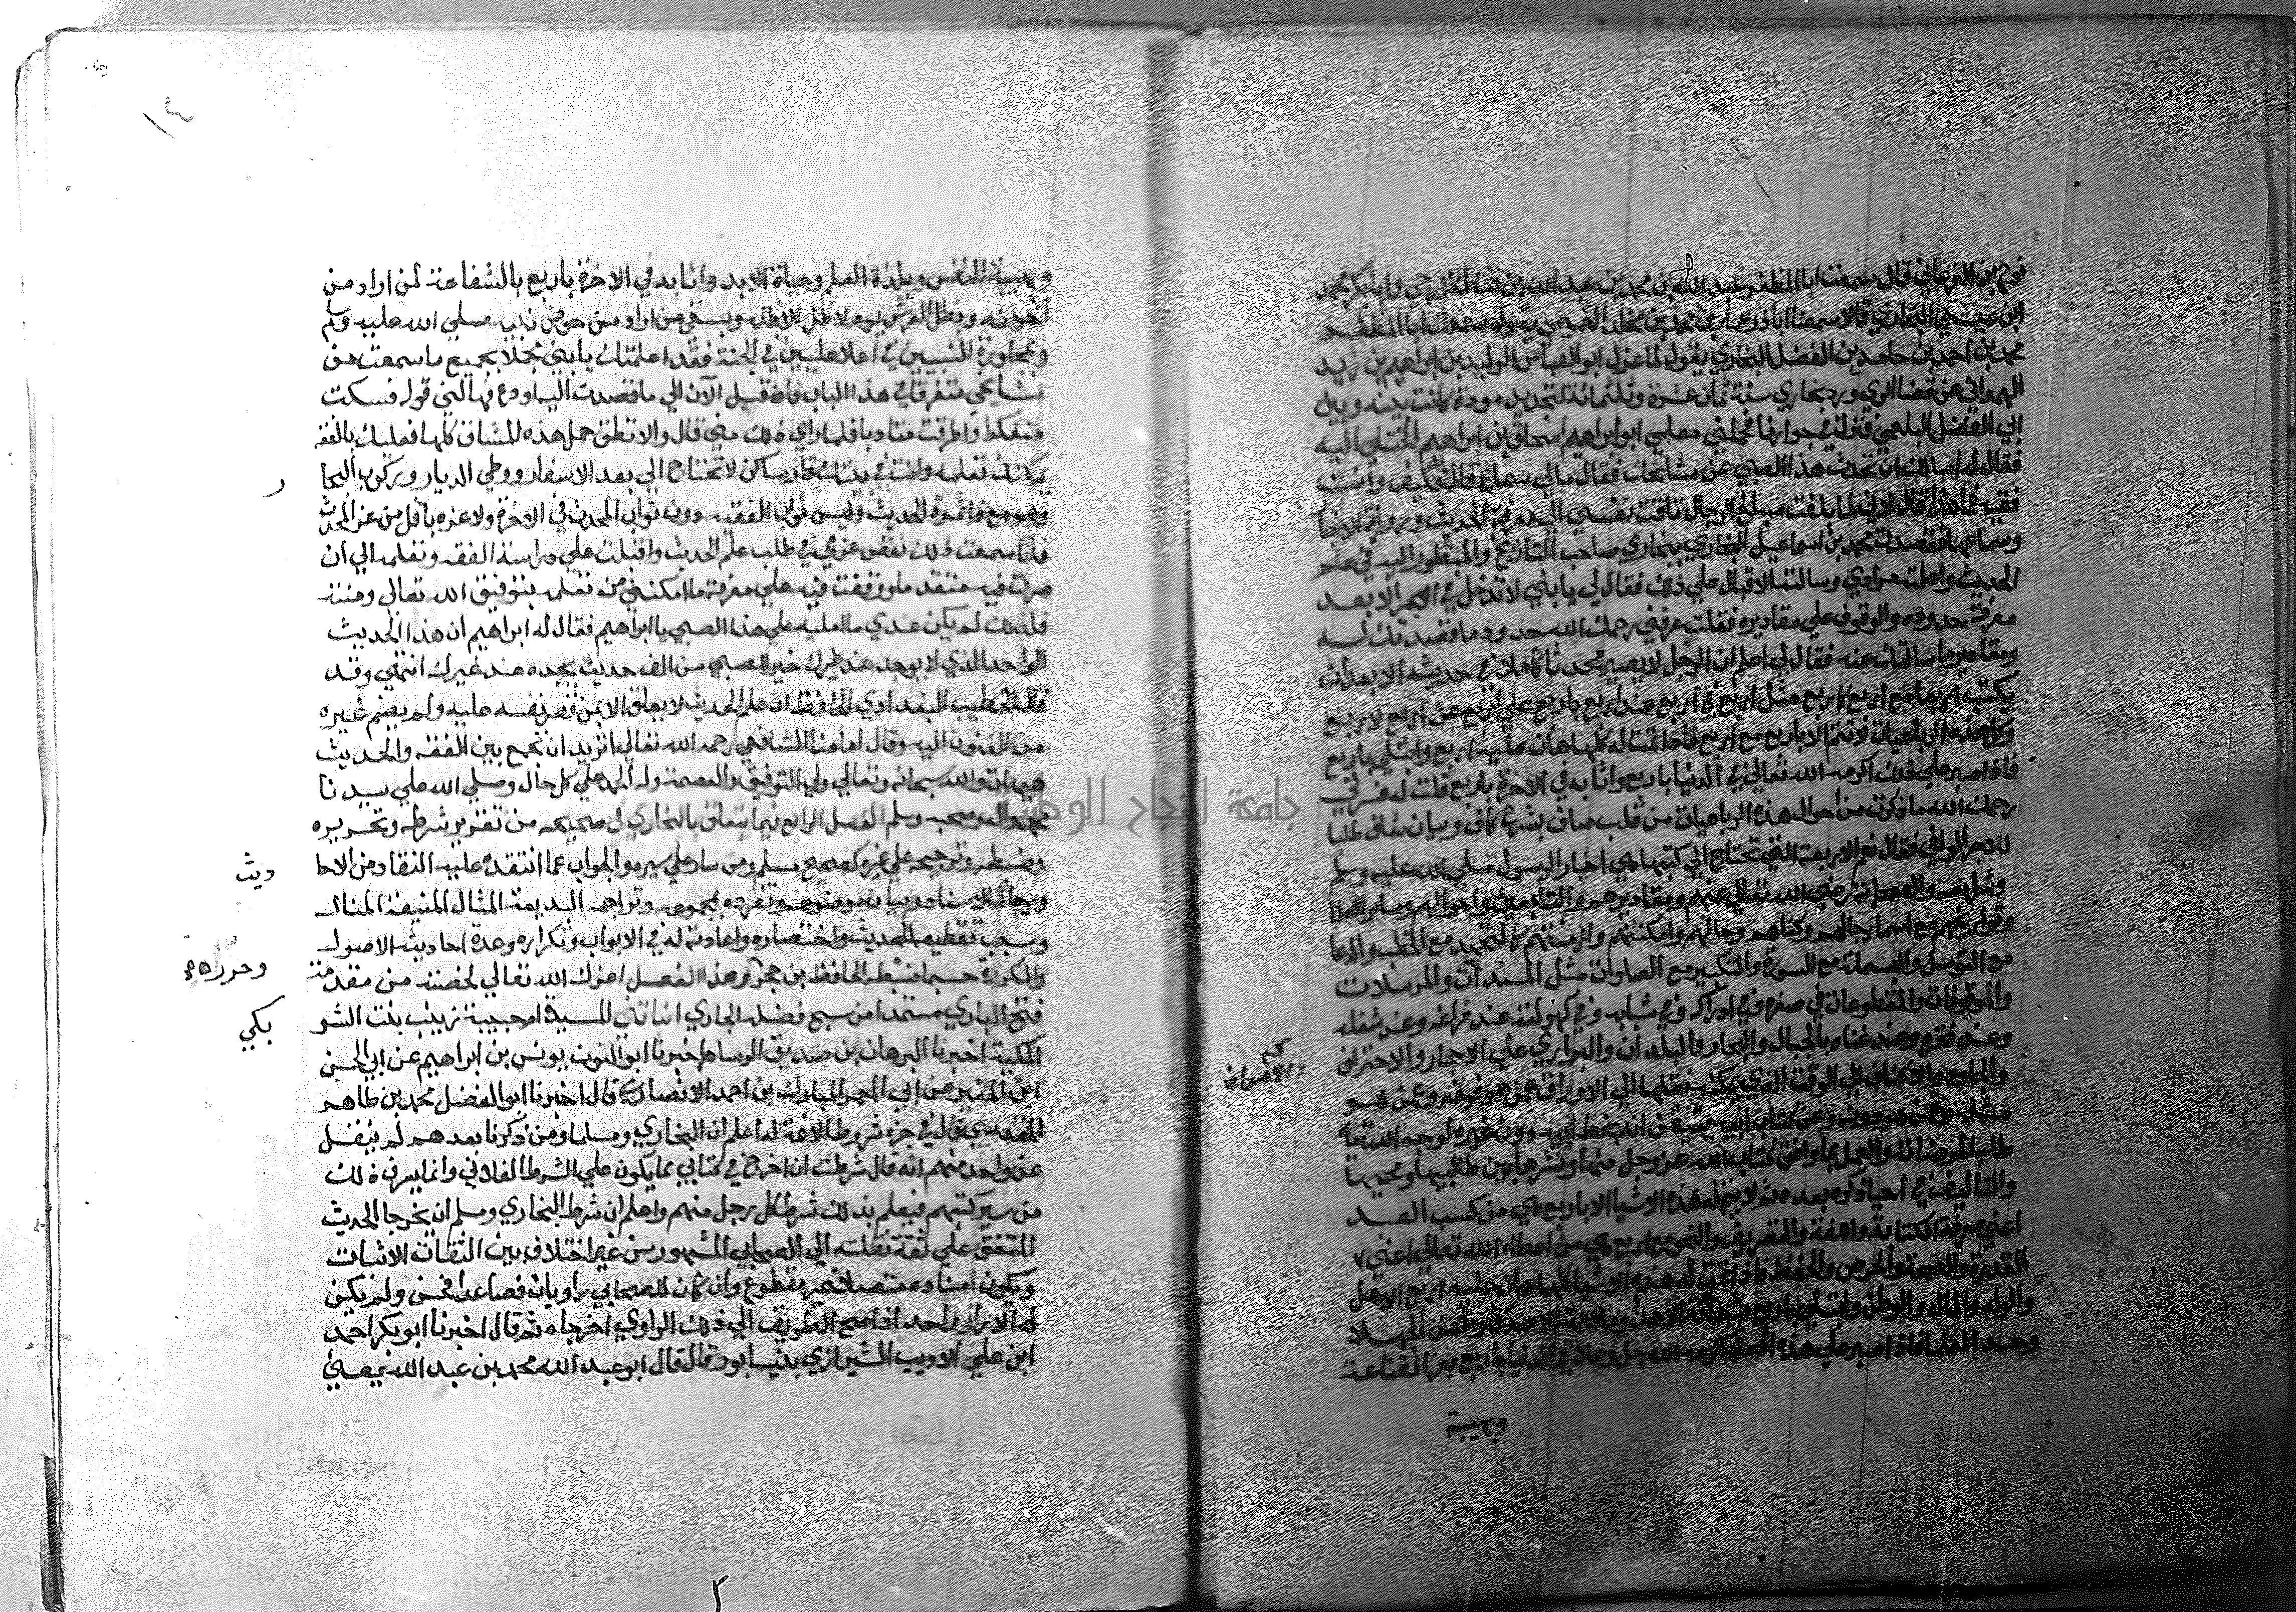 نوح بن الفرغاني قال سمعت ابا المظفر عبد الله بن محمد بن عبد الله بن قت الخزرجي وابا بكر محمد
ابن عيسي البخاري قالا سمعنا ابا ذر عمار بن محمد بن مخلد التميمي يقول سمعت ابا المظفر
محمد بن احمد بن حامد بن الفضل البخاري يقول لما عزل ابو العباس الوليد بن ابراهيم بن زيد
الهمداني عن قضا الري ورد بخاري سنة ثمان عشرة وثلثمائة لتجديد مودة كانت بينه وبين
ابي الفضل البلعمي فنزل في جوارنا فحملني معلمي ابو ابراهيم اسحاق بن ابراهيم الختلي اليه
فقال له اسالك ان تحدث هذا الصبي عن مشائخك فقال مالي سماع قال فكيف وانت
فقيه فما هذا قال لاني لما بلغت مبلغ الرجال تاقت نفسي الي معرفة الحديث ورواية الاخبار
وسماعها فقصدت محمد بن اسماعيل البخاري ببخاري صاحب التاريخ والمنظور اليه في علم
الحديث واعلمته مرادي وسالته الاقبال علي ذلك فقال لي يا بني لا تدخل في امر الا بعد
معرفة حدوده والوقوف علي مقاديره فقلت عرفني رحمك الله حدود ما قصدتك له
ومقادير ما سالتك عنه فقال لي اعلم ان الرجل لا يصير محدثا كاملا في حديثه الا بعد ان
يكتب اربعا مع اربع كاربع مثل اربع في اربع عند اربع باربع علي اربع عن اربع لاربع
وكل هذه الرباعيات لا تتم الا باربع مع اربع فاذا تمت له كلها هان عليه اربع وابتلي باربع
فاذا صبر علي ذلك اكرمه الله تعالي في الدنيا باربع واثابه في الاخرة باربع قلت له فسر لي
رحمك الله ما ذكرت من احوال هذه الرباعيات من قلب صاف بشرح كاف وبيان شاف طلبا
للاجر الوافي فقال نعم الاربعة التي تحتاج الي كتبها هي اخبار الرسول صلي الله عليه وسلم
وشرايعه والصحابة رضي الله تعالي عنهم ومقاديرهم والتابعين واحوالهم وساير العلما
وتواريخهم مع اسما رجالهم وكناهم وامكنتهم وازمنتهم كالتحميد مع الخطب والدعا
مع التوسل والبسملة مع السورة والتكبير مع الصلوات مثل المسندات والمرسلات
والموقوفات والمقطوعات في صغره وفي ادراكه وفي شبابه وفي كهولته عند فراغه وعند شغله
وعند فقره وعند غناه بالجبال والبحار والبلدان والبراري علي الاحجار والاخزاف
والجلود والاكتاف الي الوقت الذي يمكنه نقلها الي الاوراق عمن هو فوقه وعمن هو
مثله وعمن هو دونه وعن كتاب ابيه يتيقن انه بخط ابيه دون غيره لوجه الله تعالي
طلبا لمرضاته والعمل بما وافق كتاب الله عز وجل منها ونشرها بين طالبيها ومحبيها
والتاليف في احياء ذكره بعده ثم لا يتم له هذه الاشيا الا باربع هي من كسب العبد
اعني معرفة الكتابة واللغة والتصريف والنحو مع اربع هي من اعطاء الله تعالي اعني
القدرة والصحة والحرص والحفظ فاذا تمت له هذه الاشيا كلها هان عليه اربع الاهل
والولد والمال والوطن وابتلي باربع بشماتة الاعدا وملامة الاصدقا وطعن الجهلا
وحسد العلما فاذا صبر علي هذه المحن اكرمه الله جل وعلا في الدنيا باربع بعز القناعة
وبهيبة
وبهيبة النفس وبلذة العلم وحياة الابد واثابه في الاخرة باربع بالشفاعة لمن اراد من
اخوانه وبظل العرش يوم لا ظل الا ظله وبسقي من اراد من حوض نبيه صلي الله عليه وسلم
وبمجاورة النبيين في اعلا عليين في الجنة فقد اعلمتك يا بني مجملا بجميع ما سمعت من
مشايخي متفرقا في هذا الباب فاقبل الآن الي ما قصدت اليه او دع فهالني قوله فسكت
متفكرا واطرقت متادبا فلما راي ذلك مني قال والا تطق حمل هذه المشاق كلها فعليك بالفقه
يمكنك تعلمه وانت في بيتك قار ساكن لا تحتاج الي بعد الاسفار ووطي الديار وركوب البحا
ر
وهو مع ذا ثمرة الحديث وليس ثواب الفقيه دون ثواب المحدث في الاخرة ولا عزه باقل من عز المحدث
فلما سمعت ذلك نقض عزمي في طلب علم الحديث واقبلت علي دراسة الفقه وتعلمه الي ان
صرت فيه متقدما ووقفت فيه علي معرفة ما امكنني من تعلمه بتوفيق الله تعالي ومنته
فلذلك لم يكن عندي ما امليه علي هذا الصبي يا ابا ابراهيم فقال له ابراهيم ان هذا الحديث
الواحد الذي لا يوجد عند غيرك خير للصبي من الف حديث يجده عند غيرك انتهي وقد
قال الخطيب البغدادي الحافظ ان علم الحديث لا يعلق الا بمن قصر نفسه عليه ولم يضم غيره
من الفنون اليه وقال امامنا الشافعي رحمه الله تعالي اتريد ان تجمع بين الفقه والحديث
هيهات والله سبحانه وتعالي ولي التوفيق والعصمة وله الحمد علي كل حال وصلي الله علي سيدنا
محمد واله وصحبه وسلم الفصل الرابع فيما يتعلق بالبخاري في صحيحه من تقرير شرطه وتحريره
وضبطه وترجيحه علي غيره كصحيح مسلم ومن سار علي سيره والجواب عما انتقده عليه النقاد من الاحا
ديث
ورجال الاسناد وبيان موضوعه وتفرده بمجموعه وتراجمه البديعة المثال المنيعة المنال
وسبب تقطيعه للحديث واختصاره واعادته له في الابواب وتكراره وعدة احاديثه الاصول
والمكررة حسبما ضبطه الحافظ بن حجر وهذا الفصل اعزك الله تعالي لخصته من مقدمة
وحرره
فتح الباري مستمدا من سيح فضله الجاري انبأتني المسندة ام حبيبة زينب بنت الشو
بكي
المكية اخبرنا البرهان بن صديق الرسام اخبرنا ابو النون يونس بن ابراهيم عن ابي الحسن
ابن المقير عن ابي المعمر المبارك بن احمد الانصاري قال اخبرنا ابو الفضل محمد بن طاهر
المقدسي قال في جزء شروط الائمة له اعلم ان البخاري ومسلما ومن ذكرنا بعدهم لم ينقل
عن واحد منهم انه قال شرطت ان اخرج في كتابي مما يكون علي الشرط الفلاني وانما يعرف ذلك
من سبر كتبهم فيعلم بذلك شرط كل رجل منهم واعلم ان شرط البخاري ومسلم ان يخرجا الحديث
المتفق علي ثقة نقلته الي الصحابي المشهور من غير اختلاف بين الثقات الاثبات
ويكون اسناده متصلا غير مقطوع وان كان للصحابي راويان فصاعدا فحسن ولم يكن
له الا راو واحد اذا صح الطريق الي ذلك الراوي اخرجاه ثم قال اخبرنا ابو بكر احمد
ابن علي الاديب الشيرازي بنيسابور قال قال ابو عبد الله محمد بن عبد الله يعني